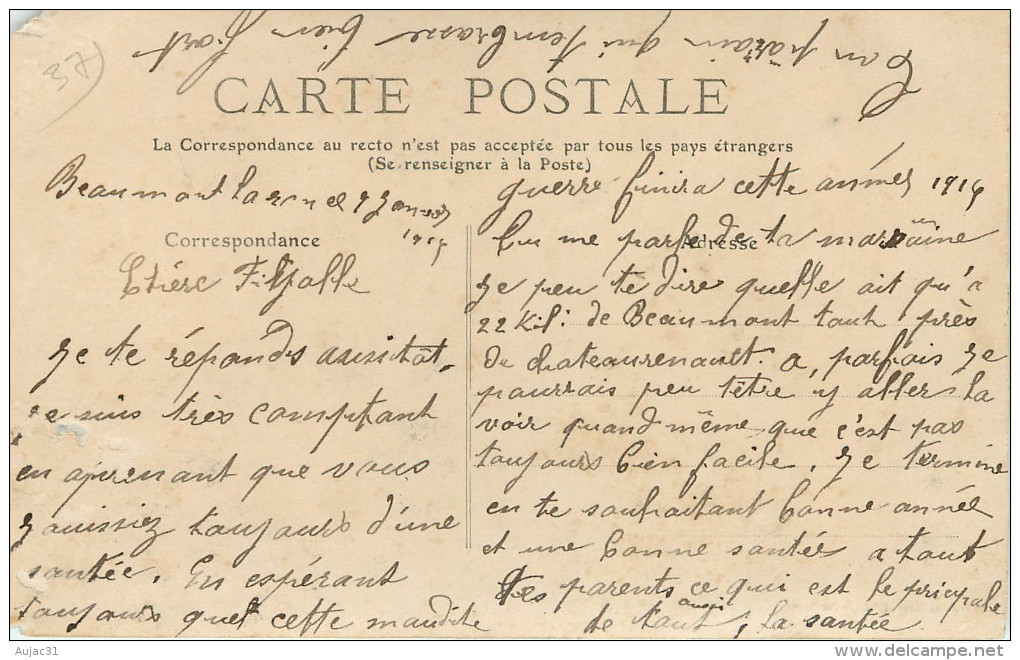 37
Ton parrain qui t'embrasse bien fort
CARTE POSTALE
La Correspondance au recto n'est pas acceptée par tous les pays étrangers
(Se renseigner à la Poste)
Beaumont la ronce 9 Janvier
1915
Correspondance
Chére Filyolle
Je te réponds aussitôt.
je suis très comptant
en aprenant que vous
jouissiez toujours d'une
santée. En espérant
toujours que cette maudite
guerre finira cette années 1915
Tu me parle de ta marraine
Adresse
Je peu te dire quelle ait qu'a
22 Kil: de Beaumont tout près
de chateaurenault a, parfais je
pourrais peu têtre y aller la
voir quand même que c'est pas
toujours bien facile. Je termine
en te souhaitant bonne année
et une bonne santée a tout
tes parents ce qui est le principale
de tout, la santée aussi
Aujac31
www.delcampe.net